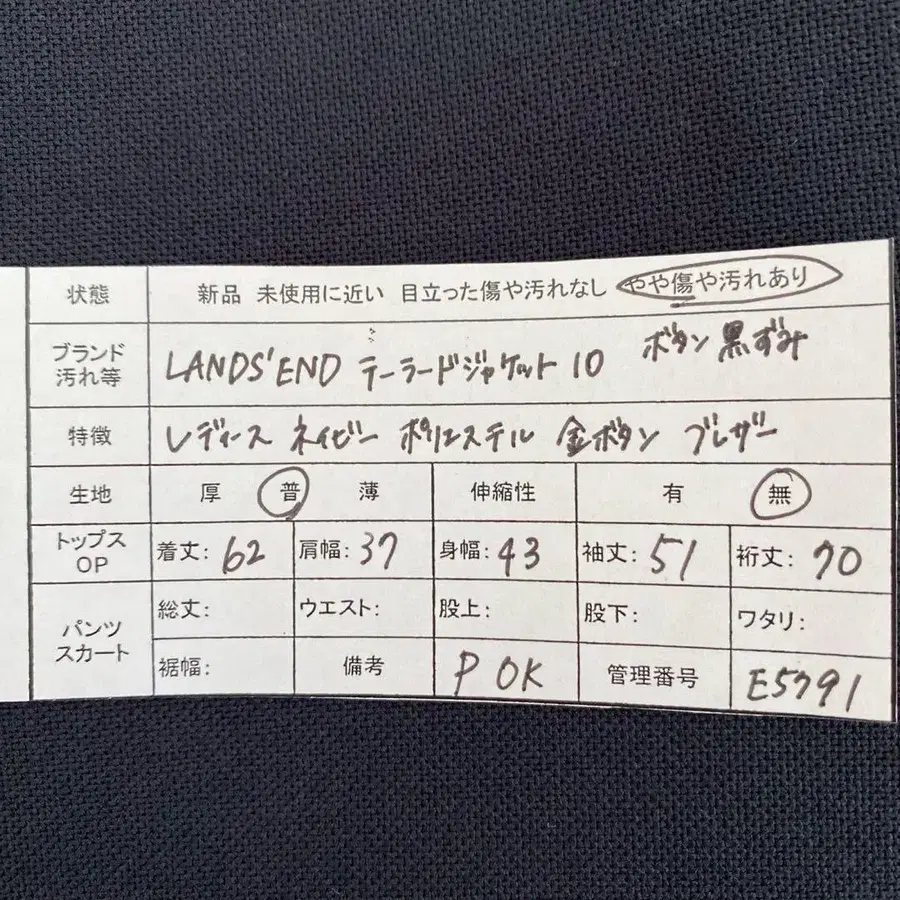 状態 新品 未使用に近い 目立った傷や汚れなし やや傷や汚れあり
ブランド 汚れ等 LANDS'END テーラードジャケット 10 ボタン 黒ずみ
特徴 レディース ネイビー ポリエステル 金ボタン ブレザー
生地 厚 普 薄 伸縮性 有 無
トップス OP 着丈: 62 肩幅: 37 身幅: 43 袖丈: 51 裄丈: 70
パンツ スカート 総丈: ウエスト: 股上: 股下: ワタリ:
裾幅: 備考 P OK 管理番号 E5791